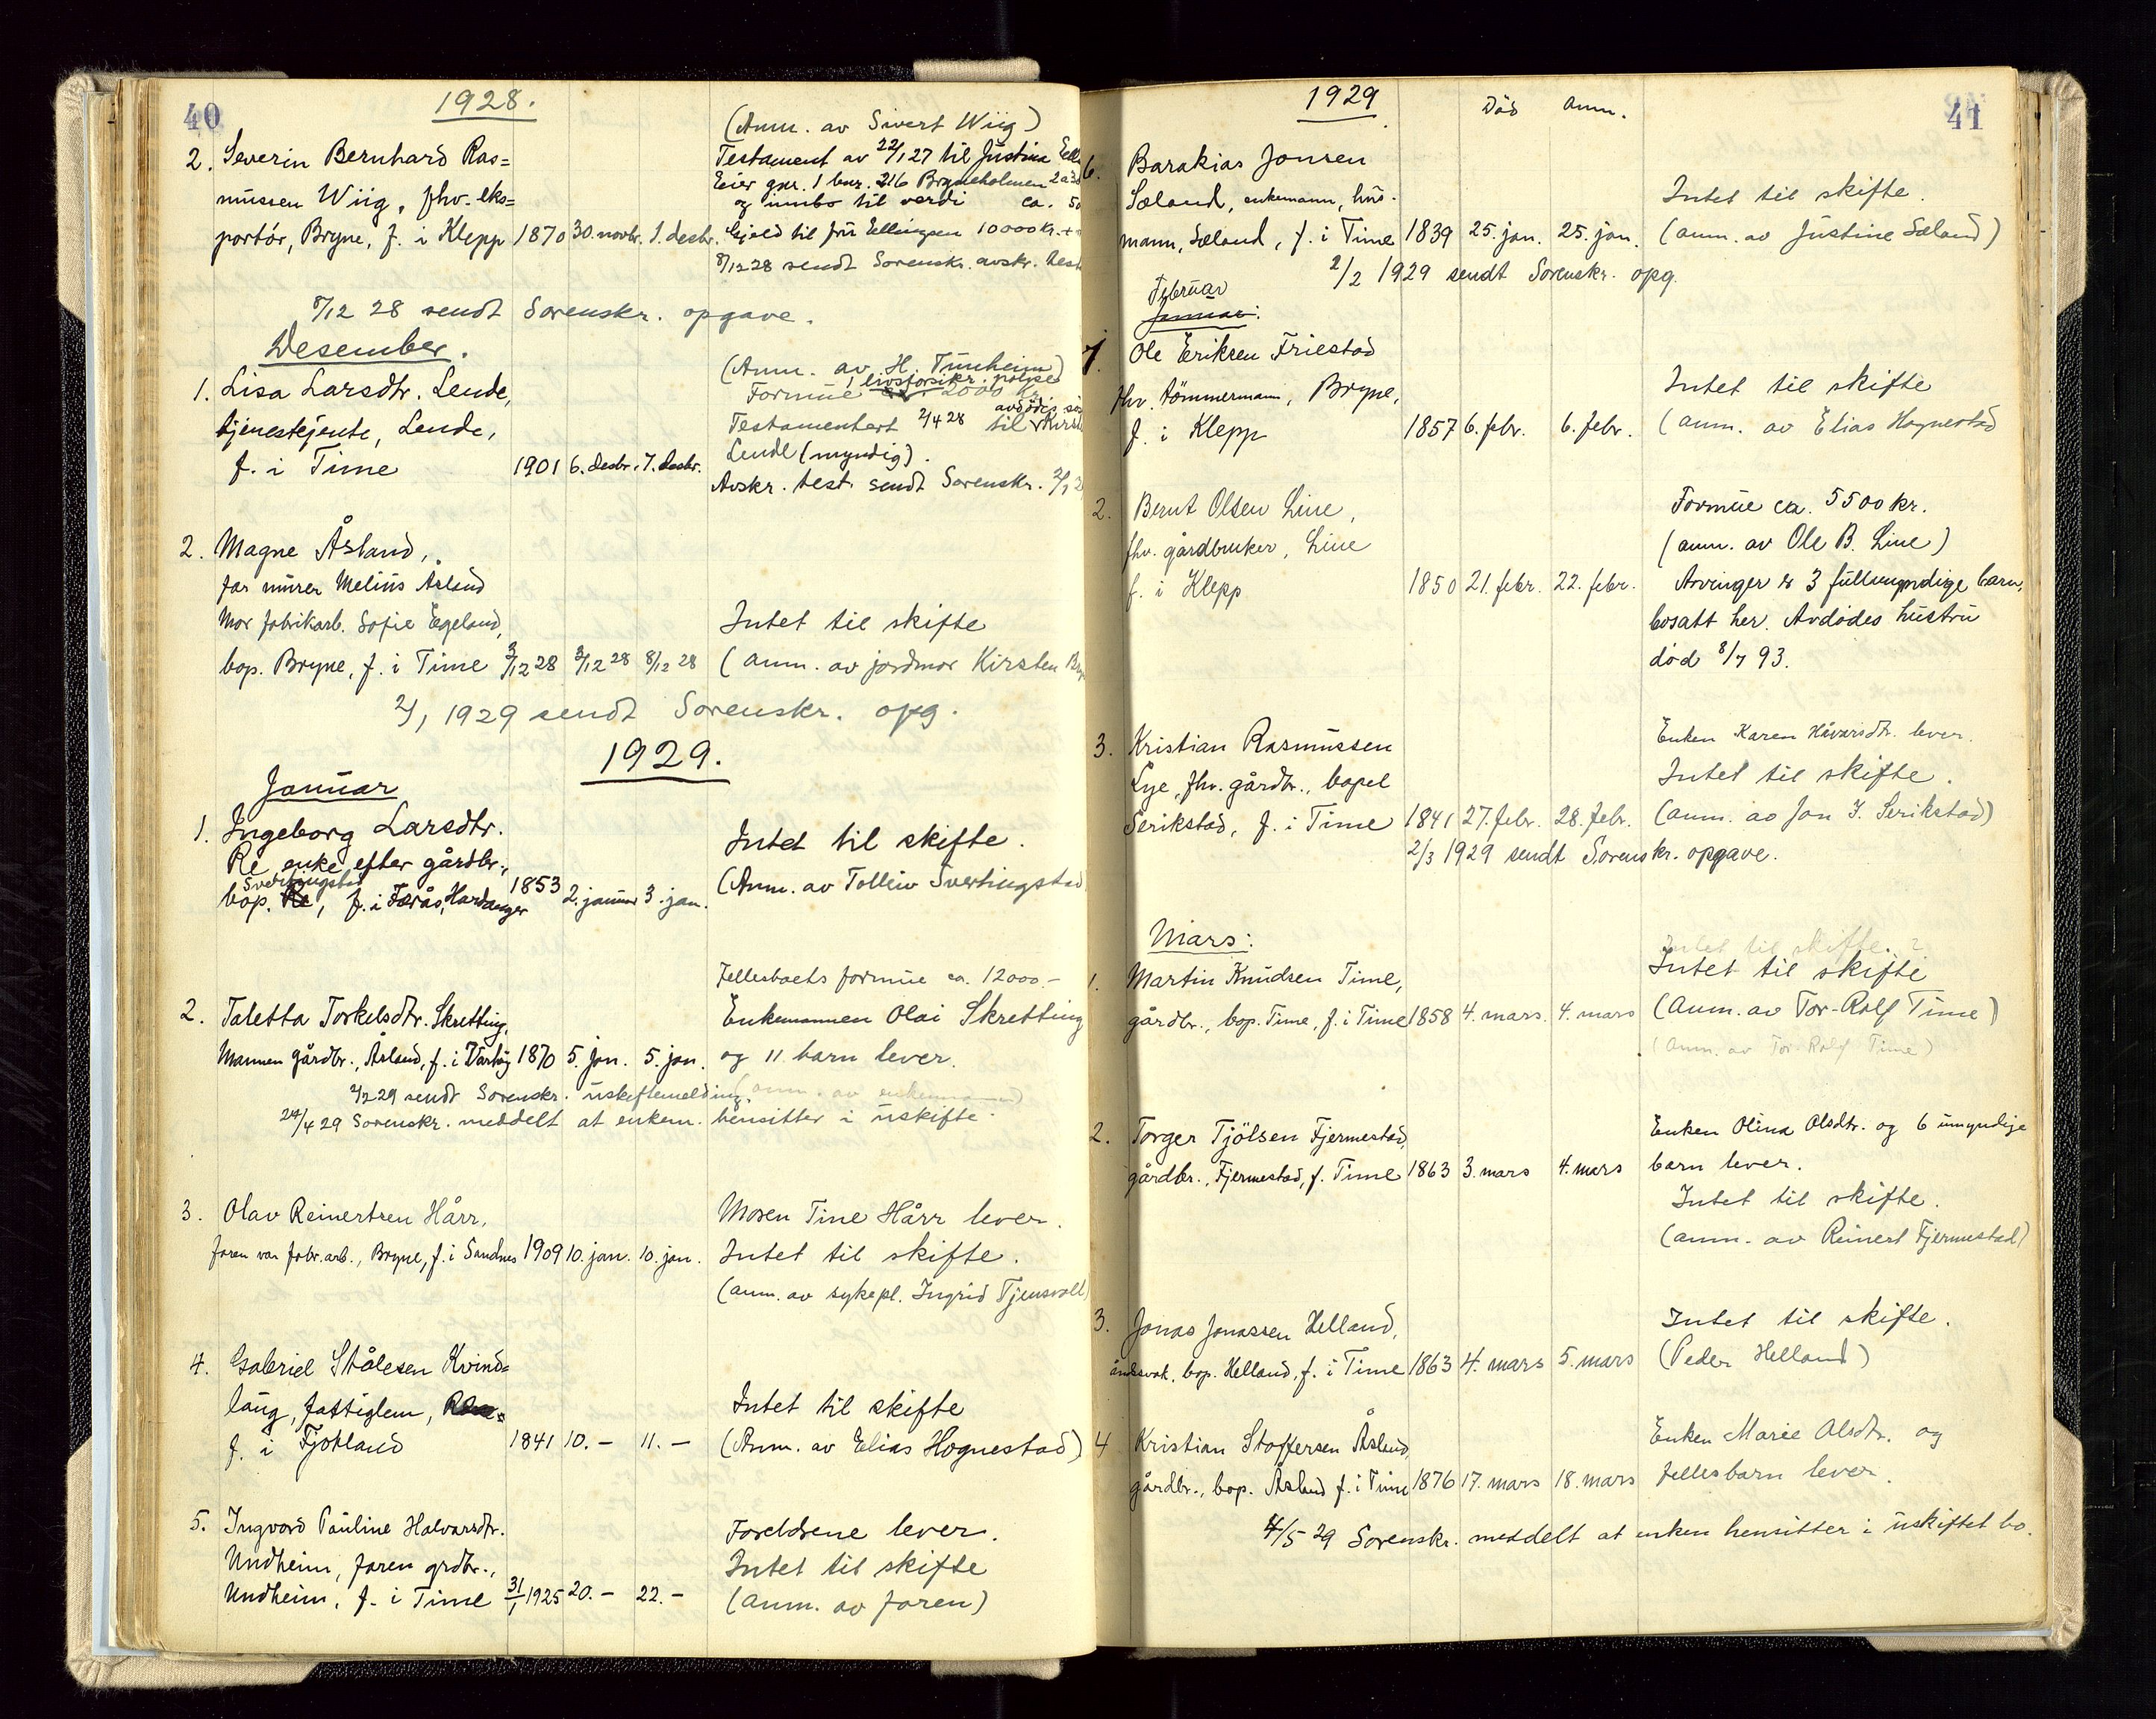 40
1928.
2. Severin Bernhard Ras=
mussen Wiig, fhv. eks=
portör, Bryne, f. i Klepp 1870 30. novbr. 1. desbr.
(Anm. av Sivert Wiig)
Testament av 22/1 27 til Justina
Eier gnr. 1 bnr. 216 Bryneholmen
og innbo til verdi ca.
Gjeld til fru Ellingsen 10000 kr. +
8/12 28 sendt Sorenskr. avskr. test
8/12 28 sendt Sorenskr. opgave.
Desember.
1. Lisa Larsdtr. Lende,
tjenestejente, Lende,
f. i Time 1901 6. desbr. 7. desbr.
(Anm. av H. Tunheim)
1 livsforsikr. polise
Formue 2000 kr.
avdödes
Testamentert 2/4 28 til
Lende (myndig).
Avskr. test. sendt Sorenskr. 2/1
2. Magne Åsland,
far murer Melius Åsland
Mor fabrikarb. Sofie Egeland,
bop. Bryne, f. i Time 3/12 28 3/12 28 8/12 28
Intet til skifte
(anm. av jordmor Kirsten
2/1 1929 sendt Sorenskr. opg.
1929.
Januar
1. Ingeborg Larsdtr.
Re enke efter gårdbr.,
Svertingstad
bop. Re, f. i Hardanger 1853 2. januar 3. jan.
Intet til skifte.
(Anm. av Tolleiv Svertingstad
2. Taletta Torkelsdtr. Skretting,
Mannen gårdbr., Åsland, f. i Varhög 1870 5. jan. 5. jan.
Fellesboets formue ca. 12000.-
Enkemannen Olai Skretting
og 11 barn lever.
(anm. av enkemannen)
2/2 29 sendt Sorenskr. uskiftemelding.
24/4 29 Sorenskr. meddelt at enkem. hensitter i uskifte.
3. Olav Reinertsen Hårr,
faren var fabr.arb., Bryne, f. i Sandnes 1909 10. jan. 10. jan.
Moren Tine Hårr lever.
Intet til skifte.
(anm. av sykepl. Ingrid Tjensvoll)
4. Gabriel Stålesen Kvind=
laug, fattiglem,
f. i Fjotland 1841 10. - 11. -
Intet til skifte
(Anm. av Elias Hognestad)
5. Ingvard Pauline Halvarsdtr.
Undheim, faren grdbr.,
Undheim, f. i Time 31/1 1925 20. - 22. -
Foreldrene lever.
Intet til skifte
(anm. av faren)
41
1929 Död Anm.
6. Barakias Jonsen
Sæland, enkemann, hus-
mann, Sæland, f. i Time 1839 25. jan. 25. jan.
Intet til skifte.
(anm. av Justine Sæland)
2/2 1929 sendt Sorenskr. opg.
Februar
Januar:
1. Ole Eriksen Friestad
fhv. tömmermann, Bryne,
f. i Klepp 1857 6. febr. 6. febr.
Intet til skifte
(anm. av Elias Hognestad
2. Bernt Olsen Line,
fhv. gårdbruker, Line
f. i Klepp 1850 21. febr. 22. febr.
Formue ca. 5500 kr.
(anm. av Ole B. Line)
Arvinger er 3 fullmyndige barn,
bosatt her. Avdödes hustru
död 8/7 93.
3. Kristian Rasmussen
Lye, fhv. gårdbr., bopel
Serikstad, f. i Time 1841 27. febr. 28. febr.
Enken Karen Håvarsdtr. lever.
Intet til skifte.
(anm. av Jon J. Serikstad)
2/3 1929 sendt Sorenskr. opgave.
Mars:
1. Martin Knudsen Time,
gårdbr., bop. Time, f. i Time 1858 4. mars. 4. mars
Intet til skifte. ?
Intet til skifte
(Anm. av Tor-Rolf Time)
(Anm. av Tor-Rolf Time)
2. Torger Tjölsen Fjermestad,
gårdbr., Fjermestad, f. Time 1863 3. mars 4. mars
Enken Olina Olsdtr. og 6 umyndige
barn lever.
Intet til skifte.
(anm. av Reinert Fjermestad)
3. Jonas Jonassen Helland,
åndssvak, bop. Helland, f. i Time 1863 4. mars 5. mars
Intet til skifte.
(Peder Helland)
4 Kristian Stoffersen Åsland,
gårdbr., bop. Åsland f. i Time 1876 17. mars 18. mars
Enken Marie Olsdtr. og
fellesbarn lever.
4/5 29 Sorenskr. meddelt at enken hensitter i uskiftet bo.